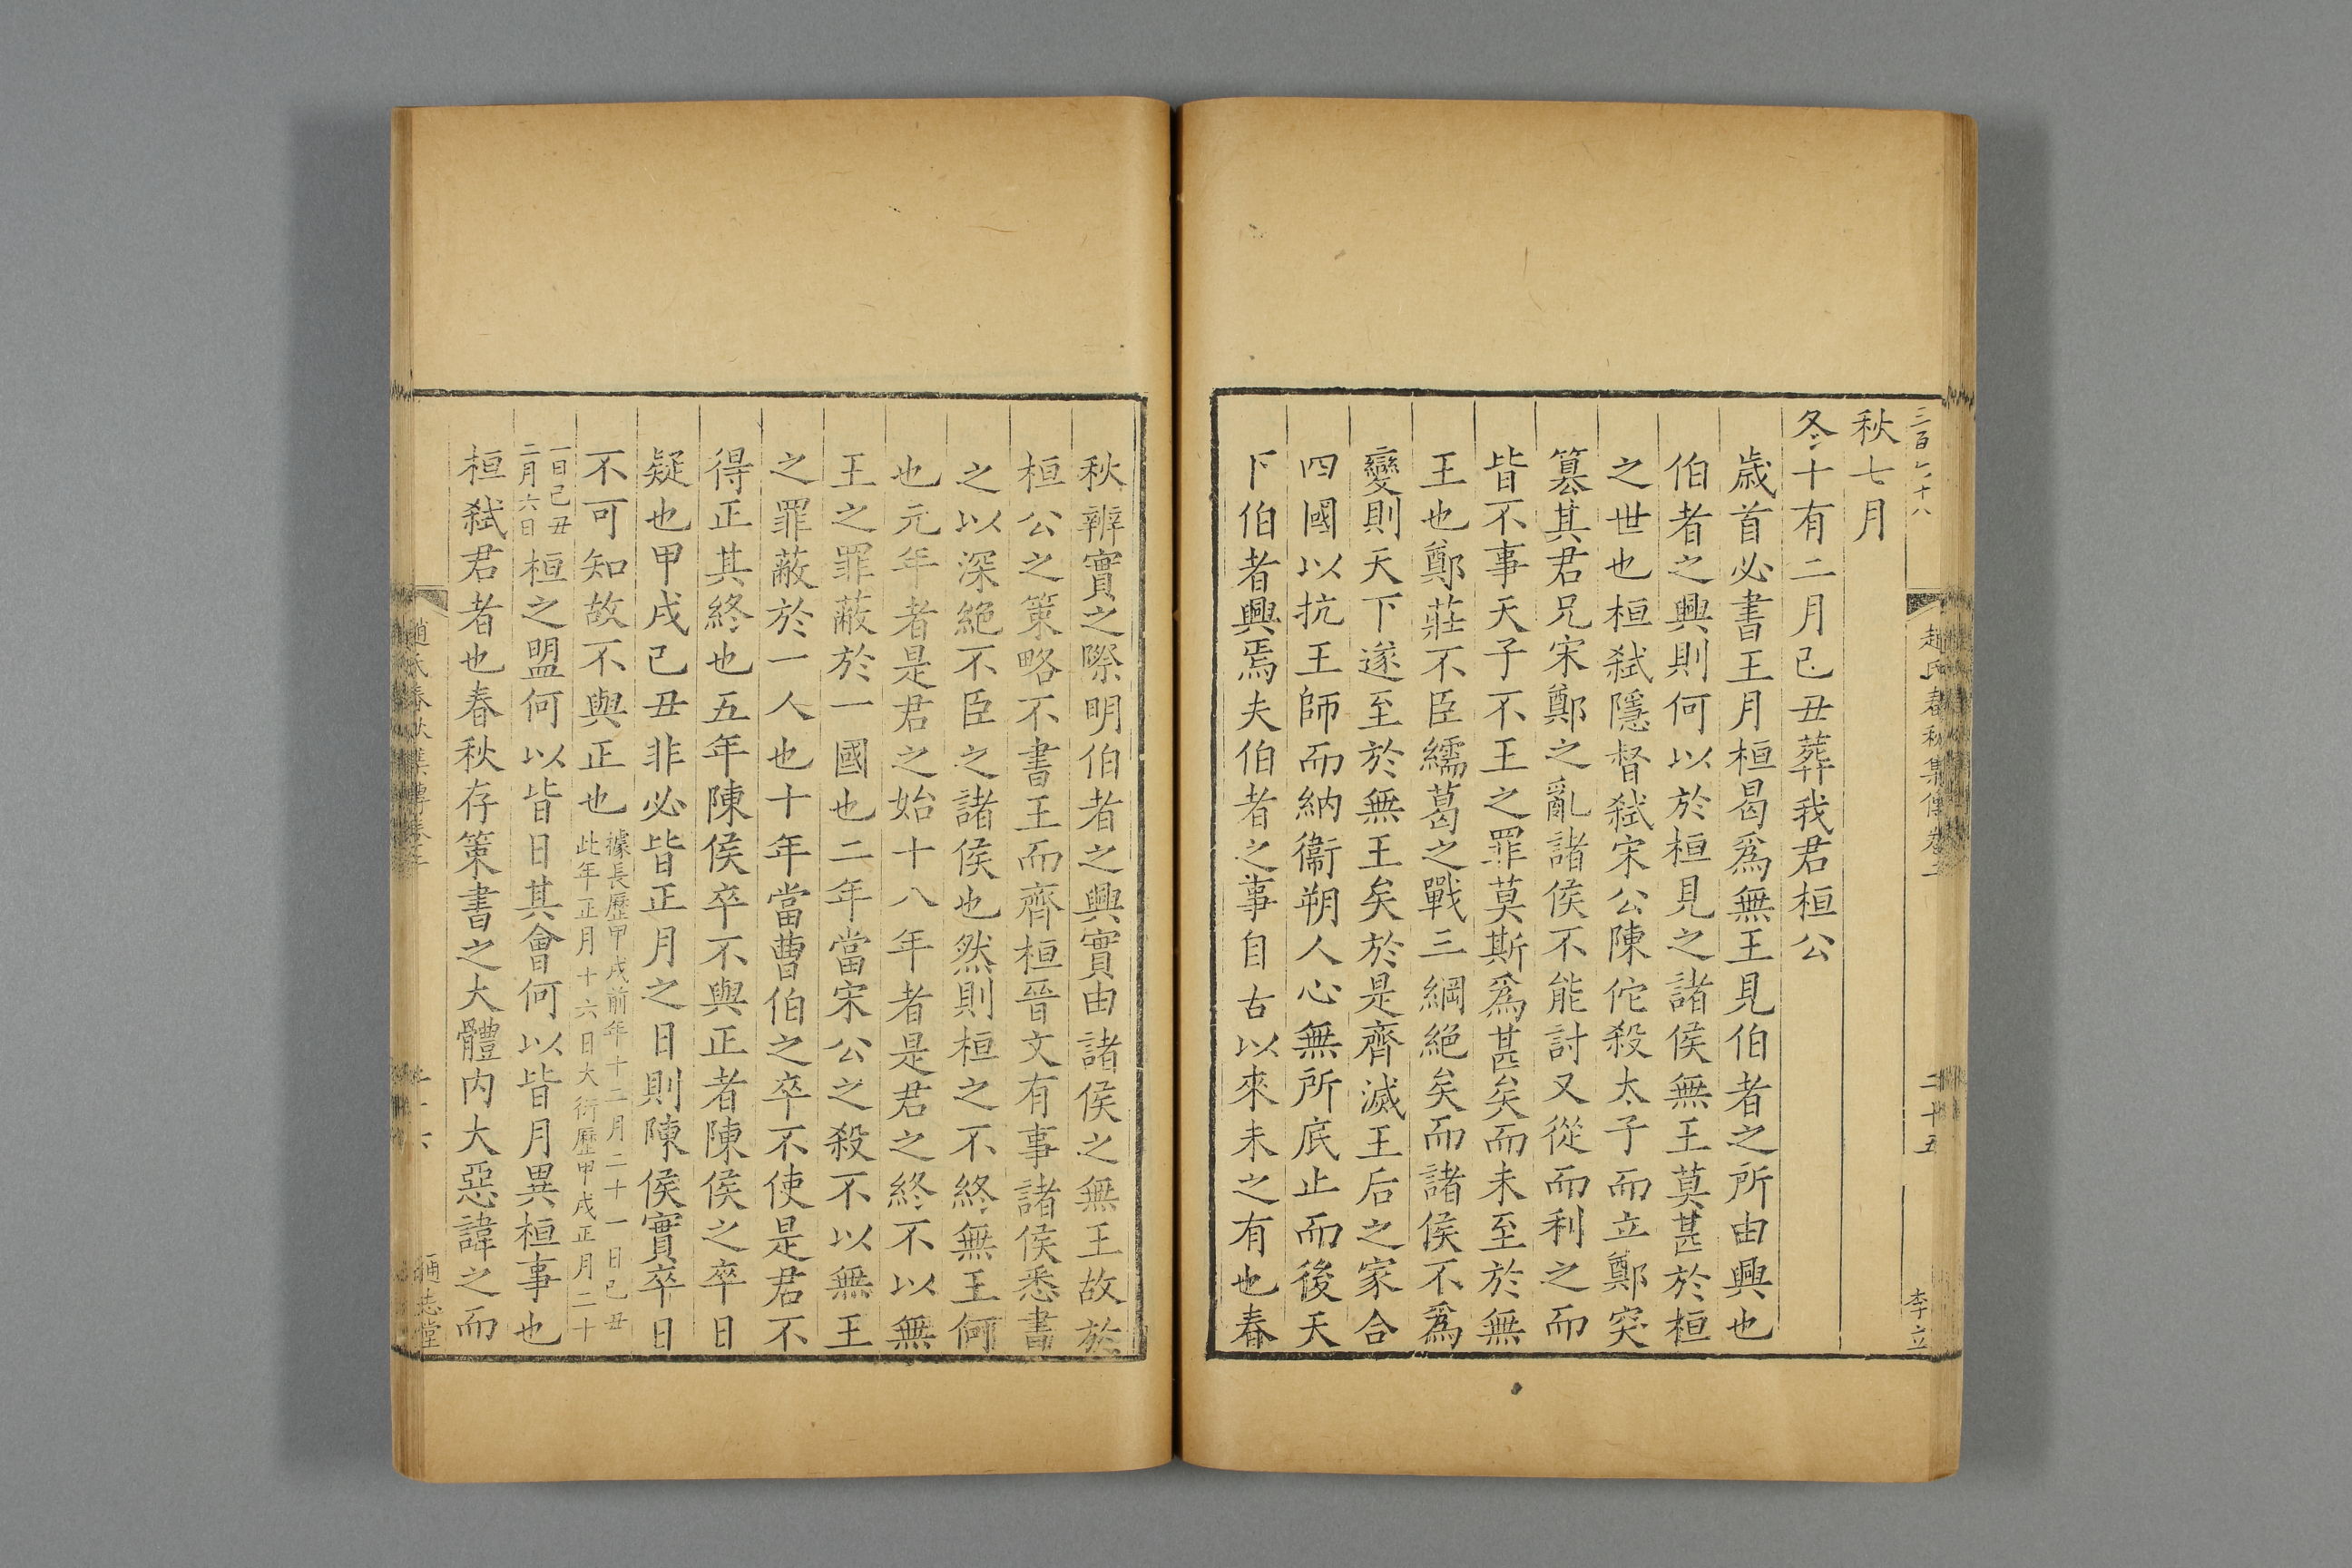 三百九十八
趙氏春秋集傳卷二
二十五
李立
秋七月
冬十有二月己丑葬我君桓公
歲首必書王月桓曷爲無王見伯者之所由興也
伯者之興則何以於桓見之諸侯無王莫甚於桓
之世也桓弑隱督弑宋公陳佗殺太子而立鄭突
篡其君兄宋鄭之亂諸侯不能討又從而利之而
皆不事天子不王之罪莫斯爲甚矣而未至於無
王也鄭莊不臣繻葛之戰三綱絕矣而諸侯不爲
變則天下遂至於無王矣於是齊滅王后之家合
四國以抗王師而納衞朔人心無所底止而後天
下伯者興焉夫伯者之事自古以來未之有也春
秋辨實之際明伯者之興實由諸侯之無王故於
桓公之策略不書王而齊桓晉文有事諸侯悉書
之以深絕不臣之諸侯也然則桓之不終無王何
也元年者是君之始十八年者是君之終不以無
王之罪蔽於一國也二年當宋公之殺不以無王
之罪蔽於一人也十年當曹伯之卒不使是君不
得正其終也五年陳侯卒不與正者陳侯之卒日
疑也甲戌己丑非必皆正月之日則陳侯實卒日
不可知故不與正也據長歷甲戌前年十二月二十一日己丑
此年正月十六日大衍歷甲戌正月二十
一日己丑
二月六日桓之盟何以皆日其會何以皆月異桓事也
桓弑君者也春秋存策書之大體内大惡諱之而
趙氏春秋集傳卷二
二十六
通志堂